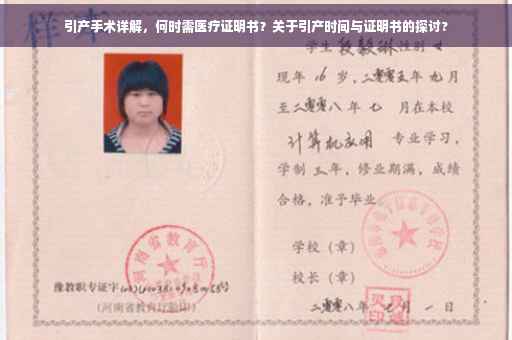 引产手术详解，何时需医疗证明书？关于引产时间与证明书的探讨？
样本
学生 段毅琳 性别 女
现年 16 岁，二零零五年 九月
至二零零八年 七 月在本校
计算机应用 专业学习，
学制 三 年，修业期满，成绩
合格，准予毕业。
学校（章）
校长（章）
二零零八年 七 月 一 日
河南省教育厅
豫教职专证字
(河南省教育厅验印)